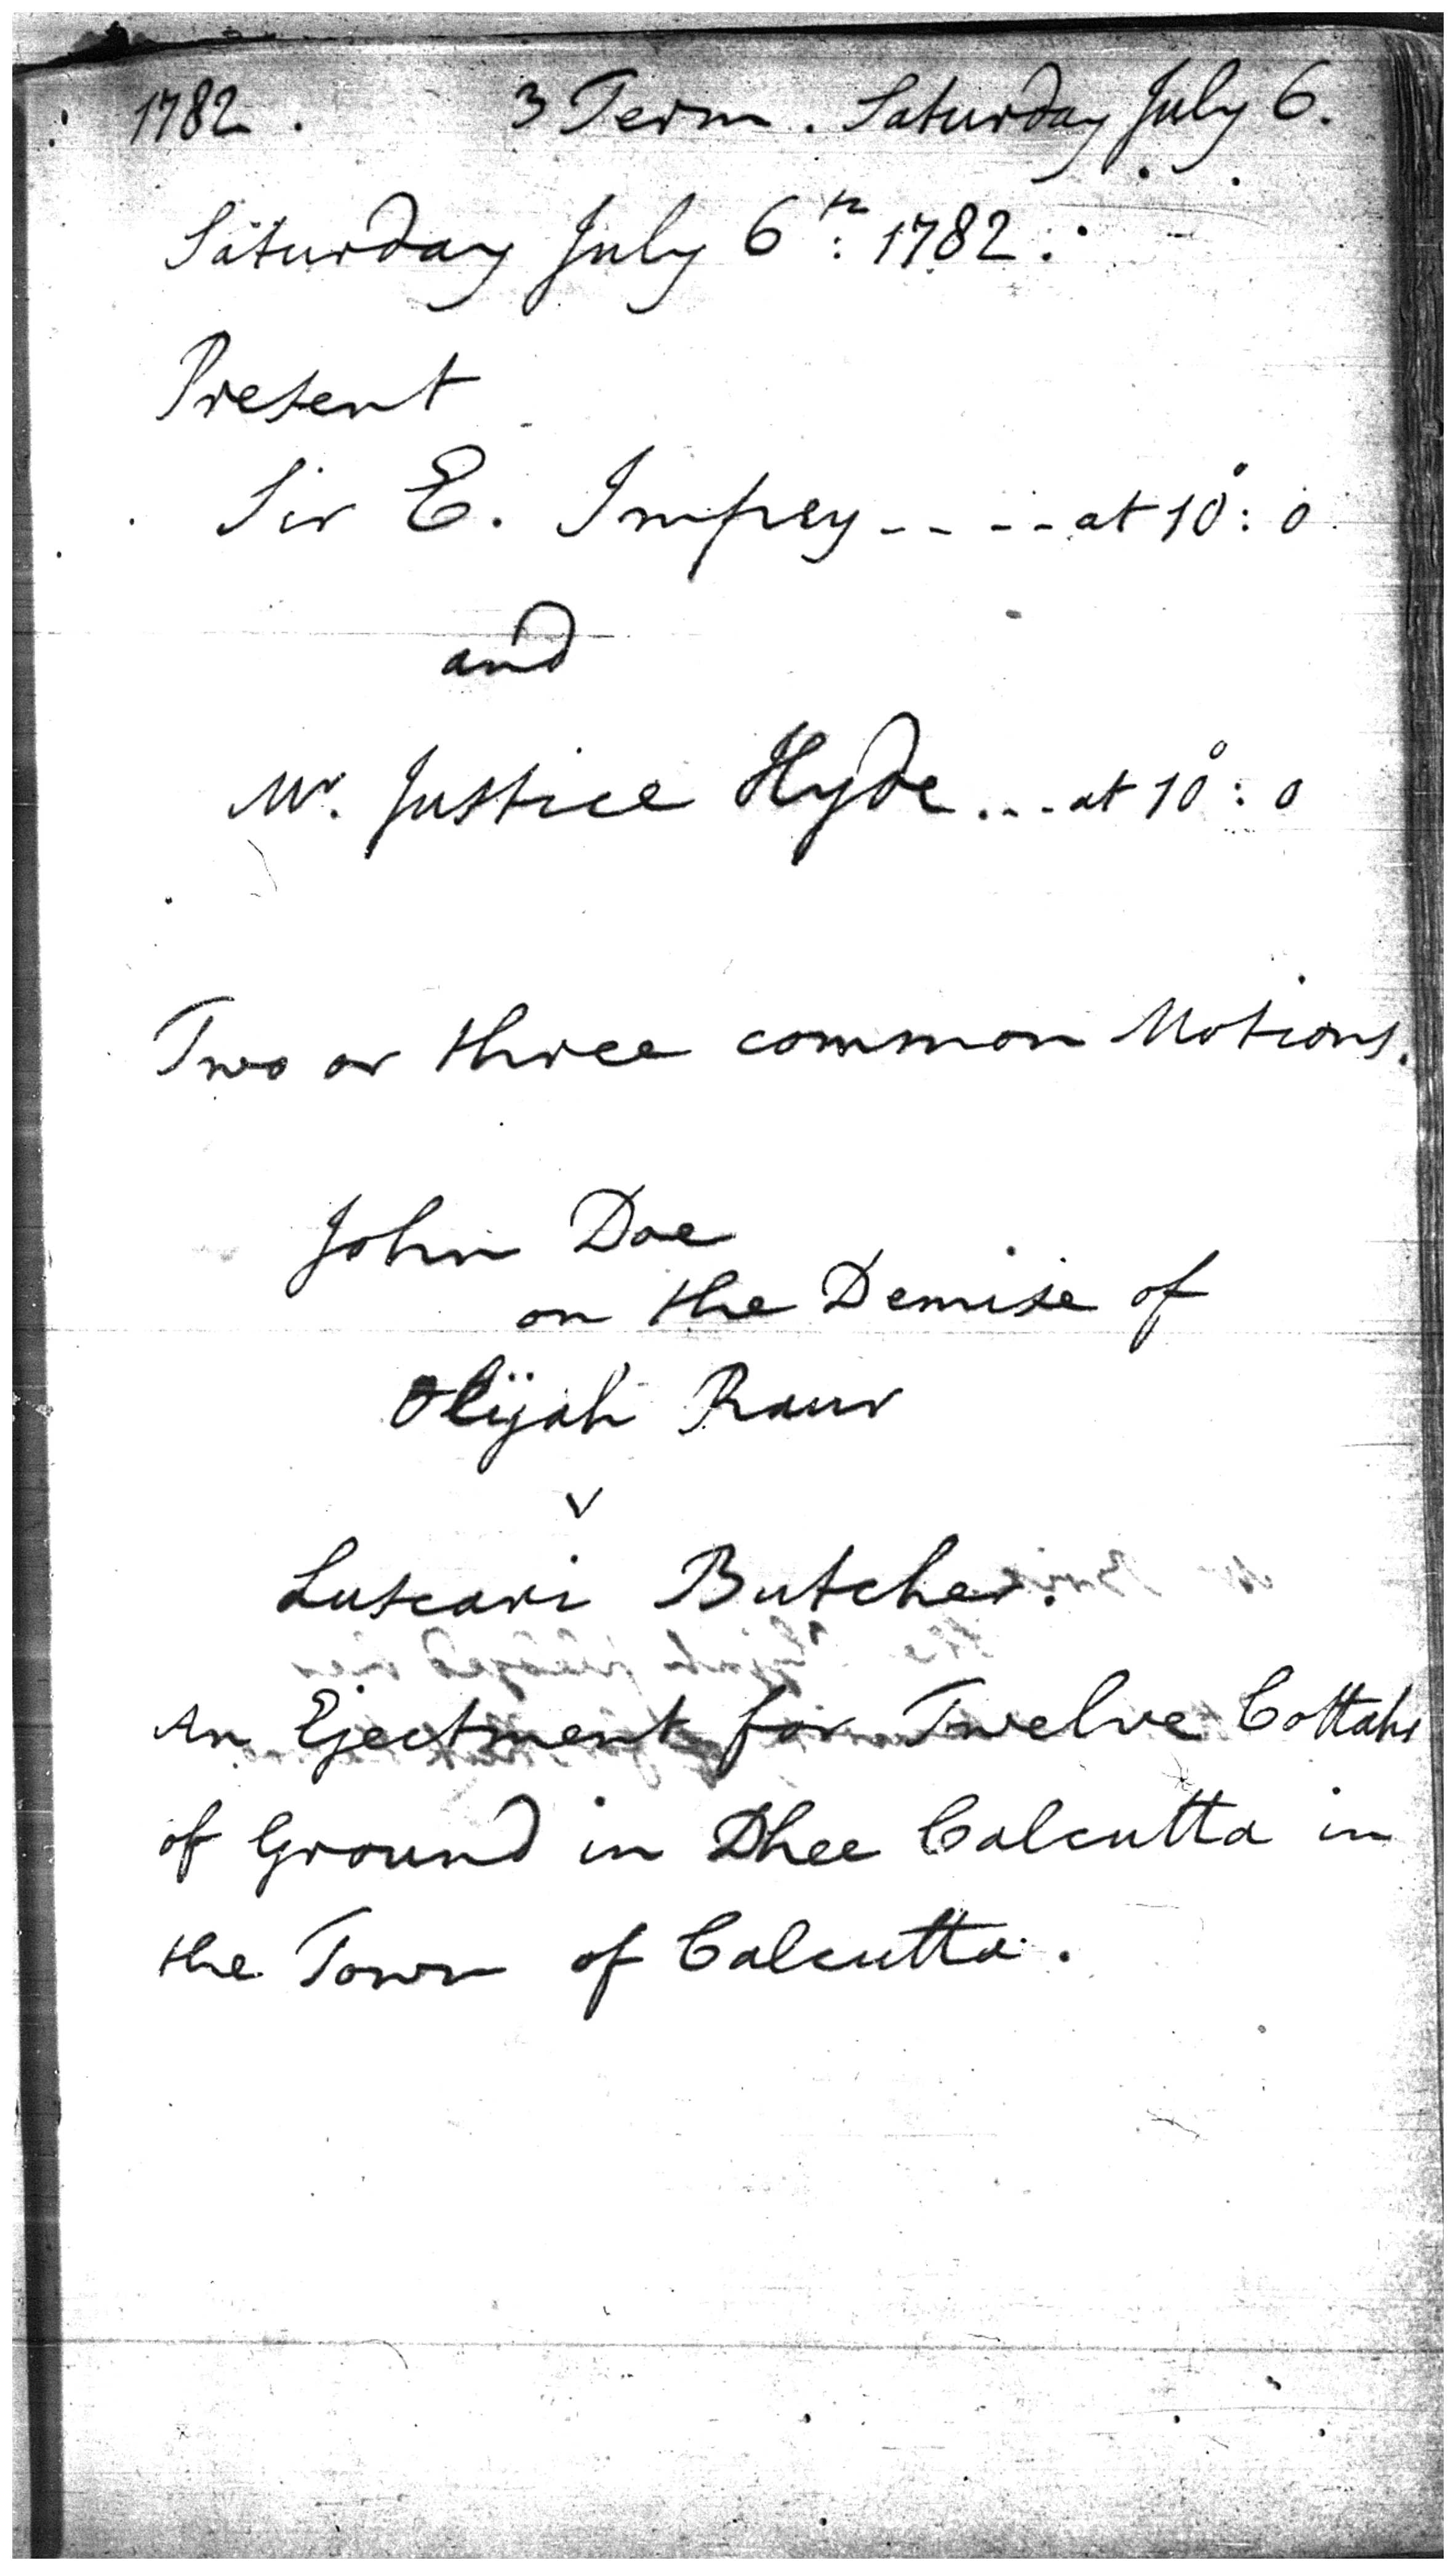 1782. 3 Term. Saturday July 6.
Saturday July 6th: 1782.
Present
Sir E. Impey ---- at 10°: 0
and
Mr. Justice Hyde ... at 10°: 0
Two or three common Motions.
John Doe
on the Demise of
Olijah Raur
v
Luscari Butcher.
An Ejectment for Twelve Cottahs
of Ground in Dhee Calcutta in
the Town of Calcutta.